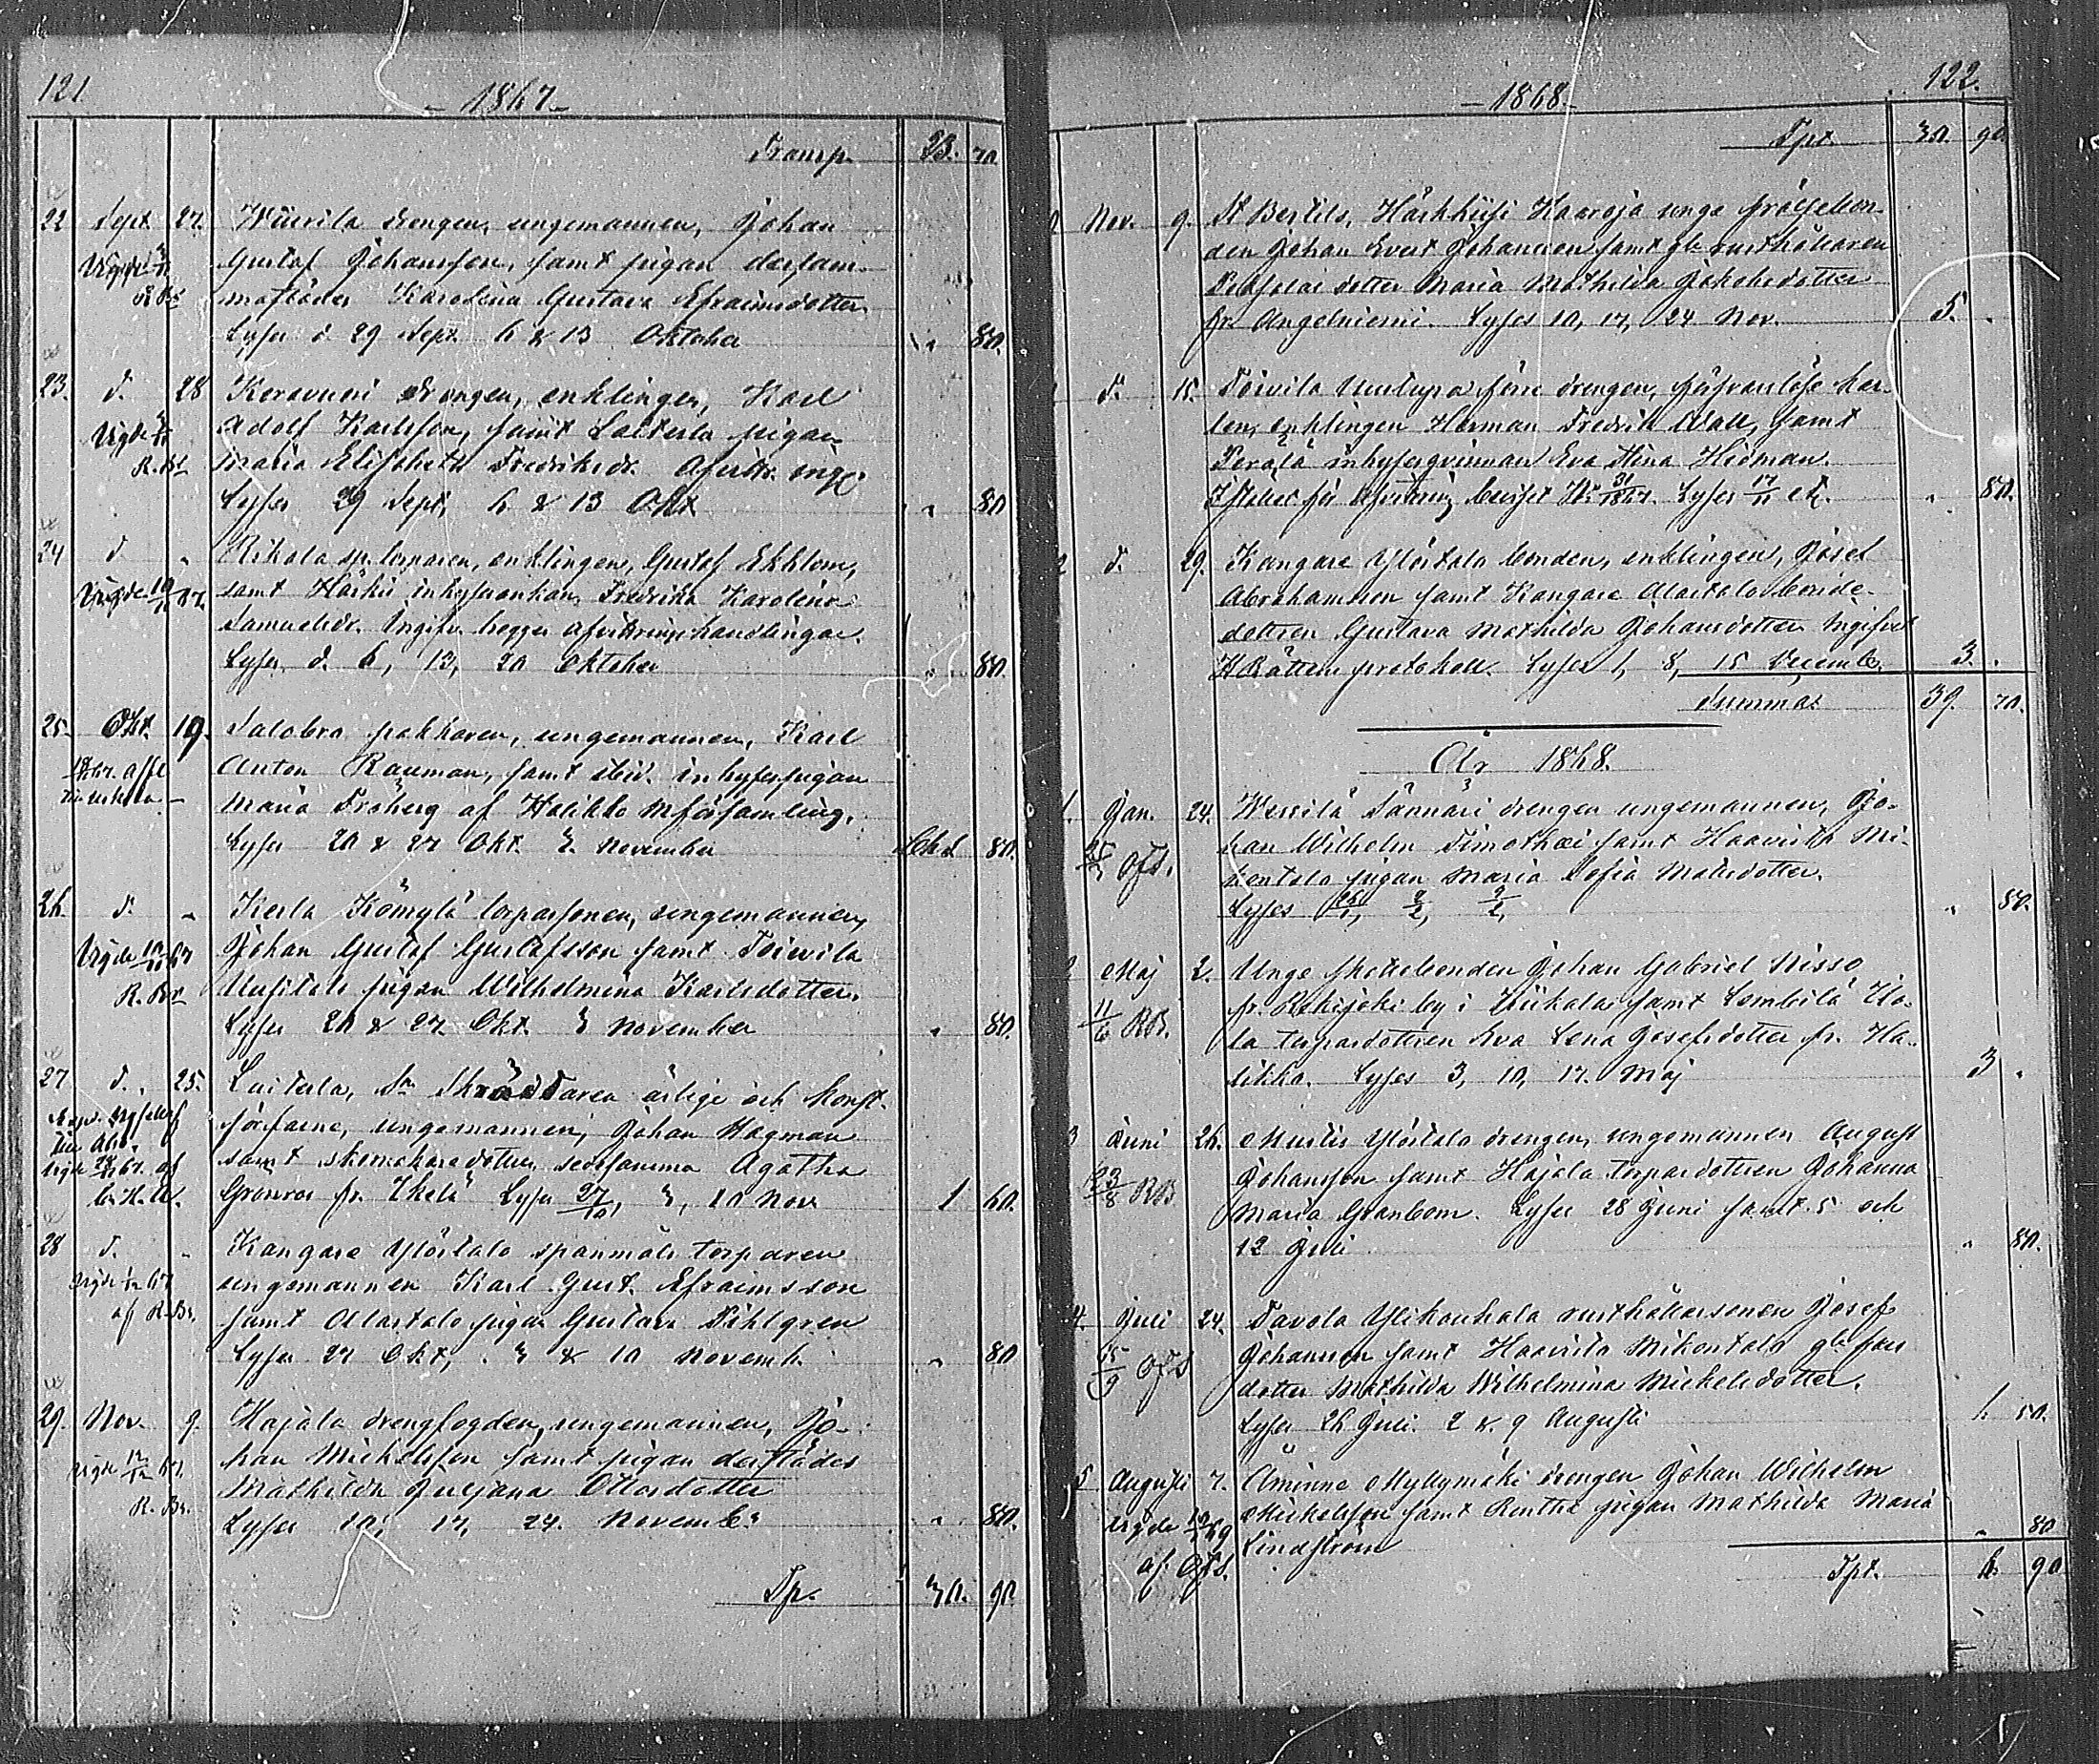 121.
- 1867 -
Transp. 23. 70.
22 Sept 27. Wiurila drengen, ungemannen, Johan
Gustaf Johansson, samt pigan dersam-
mastädes Karolina Gustava Efraimsdotter.
Lyses d 29 Sept. 6 & 13 Oktober " 80.
23. d. 28 Keravuori drengen, enklingen, Karl
Vigde
R. Br
Adolf Karlsson, samt Laiterla pigan
Maria Elisabeth Fredriksdr. Afvittr.
Lyses 29 Sept, 6 & 13 Okt " 80
24 d " Rikala sp. torparen, enklingen, Gustaf Ekblom,
Vigde 10/11 67.
samt Härkii inhysesenkan, Fredrika Karolina
Samuelsdr. Ingifv. begges afvittringshandlingar.
Lyses d. 6, 13, 20 Oktober " 80.
25. Okt. 19. Salobro ungemannen, Karl
Anton Rauman, samt ibid. inhysespigan
Maria Fröberg af Halikko Mförsamling.
Lyses 20 & 27 Okt. 3 November 80.
26. d. " Kesla Kömylä torparsonen, ungemannen,
Vigde 10/11 67
Johan Gustaf Gustafsson samt Toivila
R. Br
Uusitalo pigan Wilhelmina Karlsdotter.
Lyses 20 & 27 Okt. 3 November " 80.
27 d. 25. Laiterla, Sn Skräddaren ärlige och konst-
förfarne, ungemannen, Johan Hagman
samt skomakaredottren sedesamma Agatha
Grönroos fr. Lyses 27/10, 3, 10 Nov. 1 60.
28 d. " Kangare Ylöstalo spanmåls torparen
ungemannen Karl Gust. Efraimsson
af R. Br.
samt Alastalo pigan Gustava Pihlgren
Lyses 27 Okt, 3 & 10 Novemb. " 80
29. Nov. 9. Hajala drengfogden, ungemannen, Jo-
Vigde 12/12 67.
han Michelsson samt pigan derstädes
R. Br.
Mathilda Juljana Ottosdotter
Lyses 10, 17, 24. Novemb: " 80.
Tp. 30. 90.
122.
- 1868 -
Tpt. 30. 90.
Nov. 9. St Bertils, Härkhüsi Kaaroja unge
den Johan Evert Johansson samt gb rusthållaren
dotter Maria Mathilda Jakobsdotter
fr. Angelniemi. Lyses 10, 17, 24 Nov. 5. "
d. 15. Toivila Uusikylä förre drengen, försvarslöse kar-
len, enklingen Herman Fredrik Wall, samt
Perälä inhysesqvinnan Eva Stina Hedman.
" 80.
d. 29. Kangare Ylöstalo bonden, enklingen, Josef
Abrahamsson samt Kangare Alastalo bonde-
dottren Gustava Mathilda Johansdotter Ingifvet
H Rättens protokoll. Lyses 1, 8, 15 December. 3. "
Summa: 39. 70.
År 1868.
1. Jan. 24. Wessilä Tännäri drengen ungemannen, Jo-
han Wilhelm Timothæi samt Haavisto Mi-
OFS.
kontalo pigan Maria Sofia Matsdotter.
Lyses 26/1, 2/2, 9/2, " 80.
2 Maj 2. Unge skattebonden Johan Gabriel Nisso
fr. Rekijoki by i Kiikala samt Lembilä
11/6 RB.
la torpardottren Eva Lena Josefsdotter fr. Ha-
likko. Lyses 3, 10, 17. Maj 3 "
3 Juni 26. Mustis Ylöstalo drengen, ungemannen August
Johansson samt Hajala torpardottren Johanna
23/8 RB
Maria Granbom. Lyses 28 Juni samt 5 och
12 Juli " 80.
4. Juli 24. Tavola Ylikouhala rusthållarsonen Josef
Johansson samt Haavisto Mikontalo gb.
15/9 OFS
dotter Mathilda Wilhelmina Michelsdotter.
Lyses 26 Juli. 2 & 9 Augusti 50.
5 Augusti 7. Åminne Myllymäki drengen Johan Wilhelm
Michelsson samt Rentha pigan Mathilda Maria
af OFS.
Lindström " 80
Tpt. 6. 90